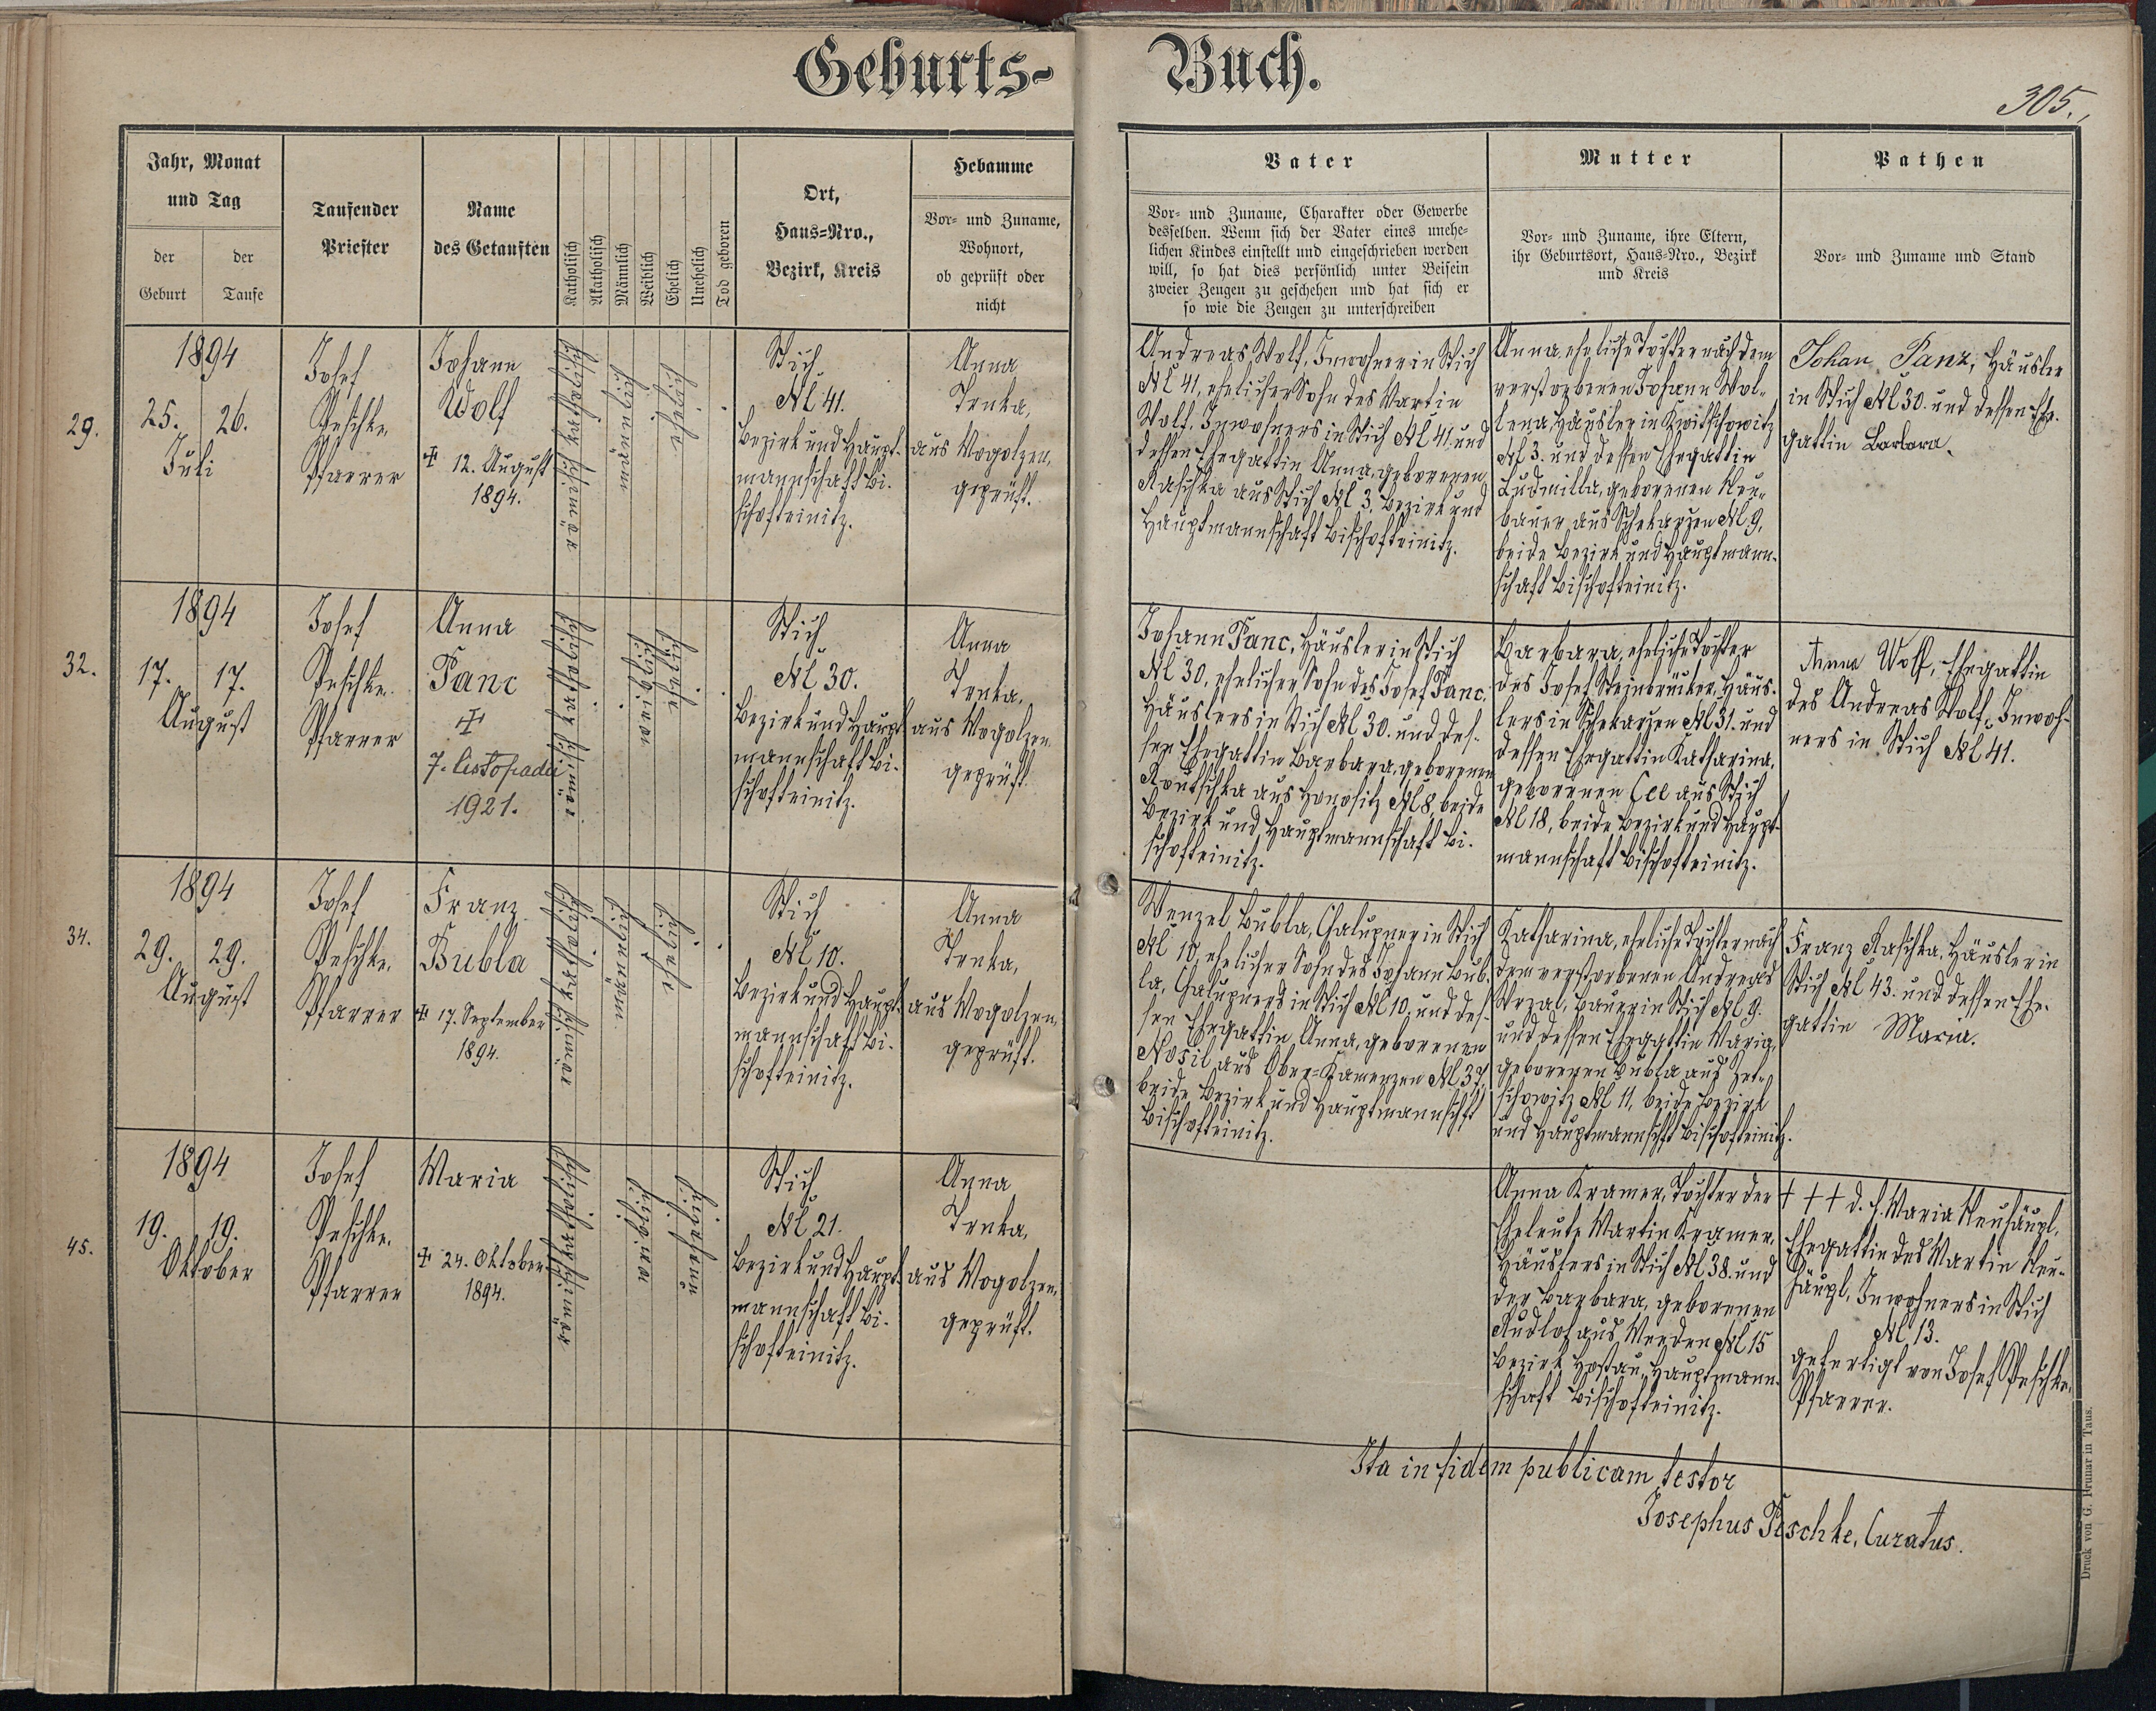 Geburts-
Buch.
305.
Jahr, Monat
und Tag
der
Geburt
der
Taufe
Taufender
Priester
Name
des Getauften
Katholisch
Akatholisch
Männlich
Weiblich
Ehelich
Unehelich
Tod geboren
Ort,
Haus-Nro.,
Bezirk, Kreis
Hebamme
Vor- und Zuname,
Wohnort,
ob geprüft oder
nicht
Vater
Vor- und Zuname, Charakter oder Gewerbe
desselben. Wenn sich der Vater eines unehe-
lichen Kindes einstellt und eingeschrieben werden
will, so hat dies persönlich unter Beisein
zweier Zeugen zu geschehen und hat sich er
so wie die Zeugen zu unterschreiben
Mutter
Vor- und Zuname, ihre Eltern,
ihr Geburtsort, Haus-Nro., Bezirk
und Kreis
Pathen
Vor- und Zuname und Stand
29.
1894
25. 26.
Juli
Josef
Peschke,
Pfarrer
Johann
Wolf
+ 12. August
1894.
römischkatholisch
männlich
ehelich
Stich
Nč 41.
Bezirk und Haupt-
mannschaft Bi-
schofteinitz.
Anna
Trnka,
aus Mogolzen,
geprüft.
Andreas Wolf, Inwohner in Stich
Nč 41, ehelicher Sohn des Martin
Wolf, Inwohners in Stich Nč 41, und
dessen Ehegattin Anna, geborenen
Raschka aus Stich Nč 3, Bezirk und
Hauptmannschaft Bischofteinitz.
Anna, eheliche Tochter nach dem
verstorbenen Johann Wol-
lena, Häusler in Kwitschowitz
Nč 3. und dessen Ehegattin
Ludmilla, geborenen Neu-
bauer aus Schekarzen Nč 9,
beide Bezirk und Hauptmann-
schaft Bischofteinitz.
Johan Panz, Häusler
in Stich Nč 30. und dessen Ehe-
gattin Barbara.
32.
1894
17. 17.
August
Josef
Peschke,
Pfarrer
Anna
Panc
+
7. listopadu
1921.
römischkatholisch
weiblich
ehelich
Stich
Nč 30.
Bezirk und Haupt-
mannschaft Bi-
schofteinitz.
Anna
Trnka,
aus Mogolzen,
geprüft.
Johann Panc, Häusler in Stich
Nč 30, ehelicher Sohn des Josef Panc,
Häuslers in Stich Nč 30. und des-
sen Ehegattin Barbara, geborenen
aus Honositz Nč 8, beide
Bezirk und Hauptmannschaft Bi-
schofteinitz.
Barbara, eheliche Tochter
des Josef Steinbrücker, Häus-
lers in Schekarzen Nč 31. und
dessen Ehegattin Katharina,
geborenen aus Stich
Nč 18, beide Bezirk und Haupt-
mannschaft Bischofteinitz.
Anna Wolf, Ehegattin
des Andreas Wolf, Inwoh-
ners in Stich Nč 41.
34.
1894
29. 29.
August
Josef
Peschke,
Pfarrer
Franz
Bubla
+ 17. September
1894.
römischkatholisch
männlich
ehelich
Stich
Nč 10.
Bezirk und Haupt-
mannschaft Bi-
schofteinitz.
Anna
Trnka,
aus Mogolzen,
geprüft.
Wenzel Bubla, Chalupner in Stich
Nč 10, ehelicher Sohn des Johann Bub-
la, Chalupners in Stich Nč 10, und des-
sen Ehegattin Anna, geborenen
Nosil aus Ober-Kamenzen Nč 37,
beide Bezirk und Hauptmannschft
Bischofteinitz.
Katharina, eheliche Tochter nach
dem verstorbenen Andreas
Wrzal, Bauer in Stich Nč 9.
und dessen Ehegattin Maria,
geborenen Bubla aus Zet-
schowitz Nč 11, beide Bezirk
und Hauptmannschft Bischofteinitz.
Franz Raschka, Häusler in
Stich Nč 43. und dessen Ehe-
gattin Maria.
45.
1894
19. 19.
Oktober
Josef
Peschke,
Pfarrer
Maria
+ 24. Oktober
1894.
römischkatholisch
weiblich
unehelich
Stich
Nč 21.
Bezirk und Haupt-
mannschaft Bi-
schofteinitz.
Anna
Trnka,
aus Mogolzen,
geprüft.
Anna Kramer, Tochter der
Eheleute Martin Kramer,
Häuslers in Stich Nč 38. und
der Barbara, geborenen
Rudlof aus Weeden Nč 15
Bezirk Hostau, Hauptmann-
schaft Bischofteinitz.
+ + + d. h. Maria Neuhäupl,
Ehegattin des Martin Neu-
häupl, Inwohners in Stich
Nč 13.
gefertigt von Josef Peschke,
Pfarrer.
Ita in fidem publicam testor
Josephus Peschke, Curatus.
Druck von G. Prunar in Taus.